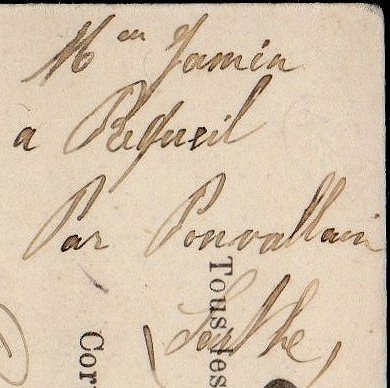 Mon Jamin
a Requeil
Par Ponvallain
(Sarthe)
Tous les
Cor